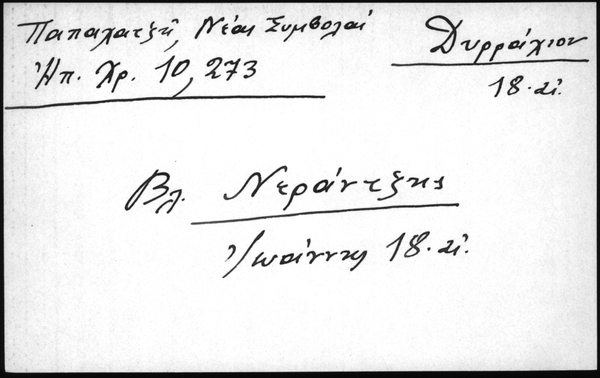 Παπαχατζῆ, Νέαι Συμβολαί
Ἠπ. Χρ. 10, 273
Δυρράχιον
18. αἰ.
Βλ. Νεράντζης
Ἰωάννης 18. αἰ.